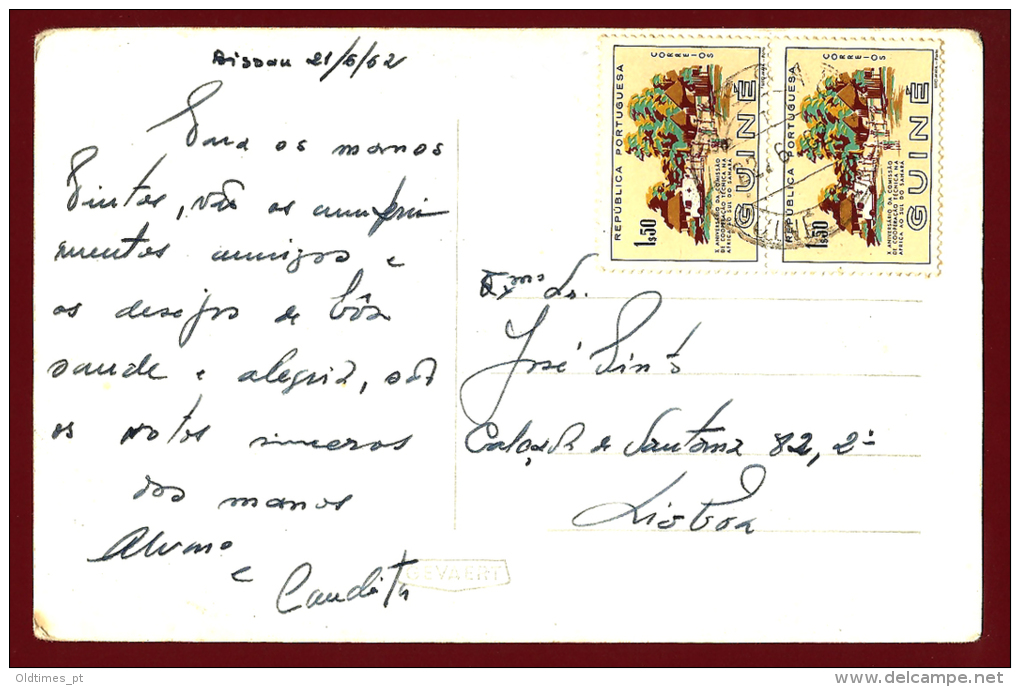 Bissau 21/6/62
Para os manos
Pintos, vão os cumpri
mentos amigos e
os desejos de bôa
saude e alegria, são
os votos sinceros
dos manos
Alvaro
e
Candita
Exmo Sr.
José Pinto
Calçada de Santana 82, 2º
Lisboa
REPÚBLICA PORTUGUESA
CORREIOS
1$50
X ANIVERSÁRIO DA COMISSÃO
DE COOPERAÇÃO TÉCNICA NA
ÁFRICA AO SUL DO SAHARÁ
GUINÉ
REPÚBLICA PORTUGUESA
CORREIOS
1$50
X ANIVERSÁRIO DA COMISSÃO
DE COOPERAÇÃO TÉCNICA NA
ÁFRICA AO SUL DO SAHARÁ
GUINÉ
GEVAERT
Oldtimes_pt
delcampe.net